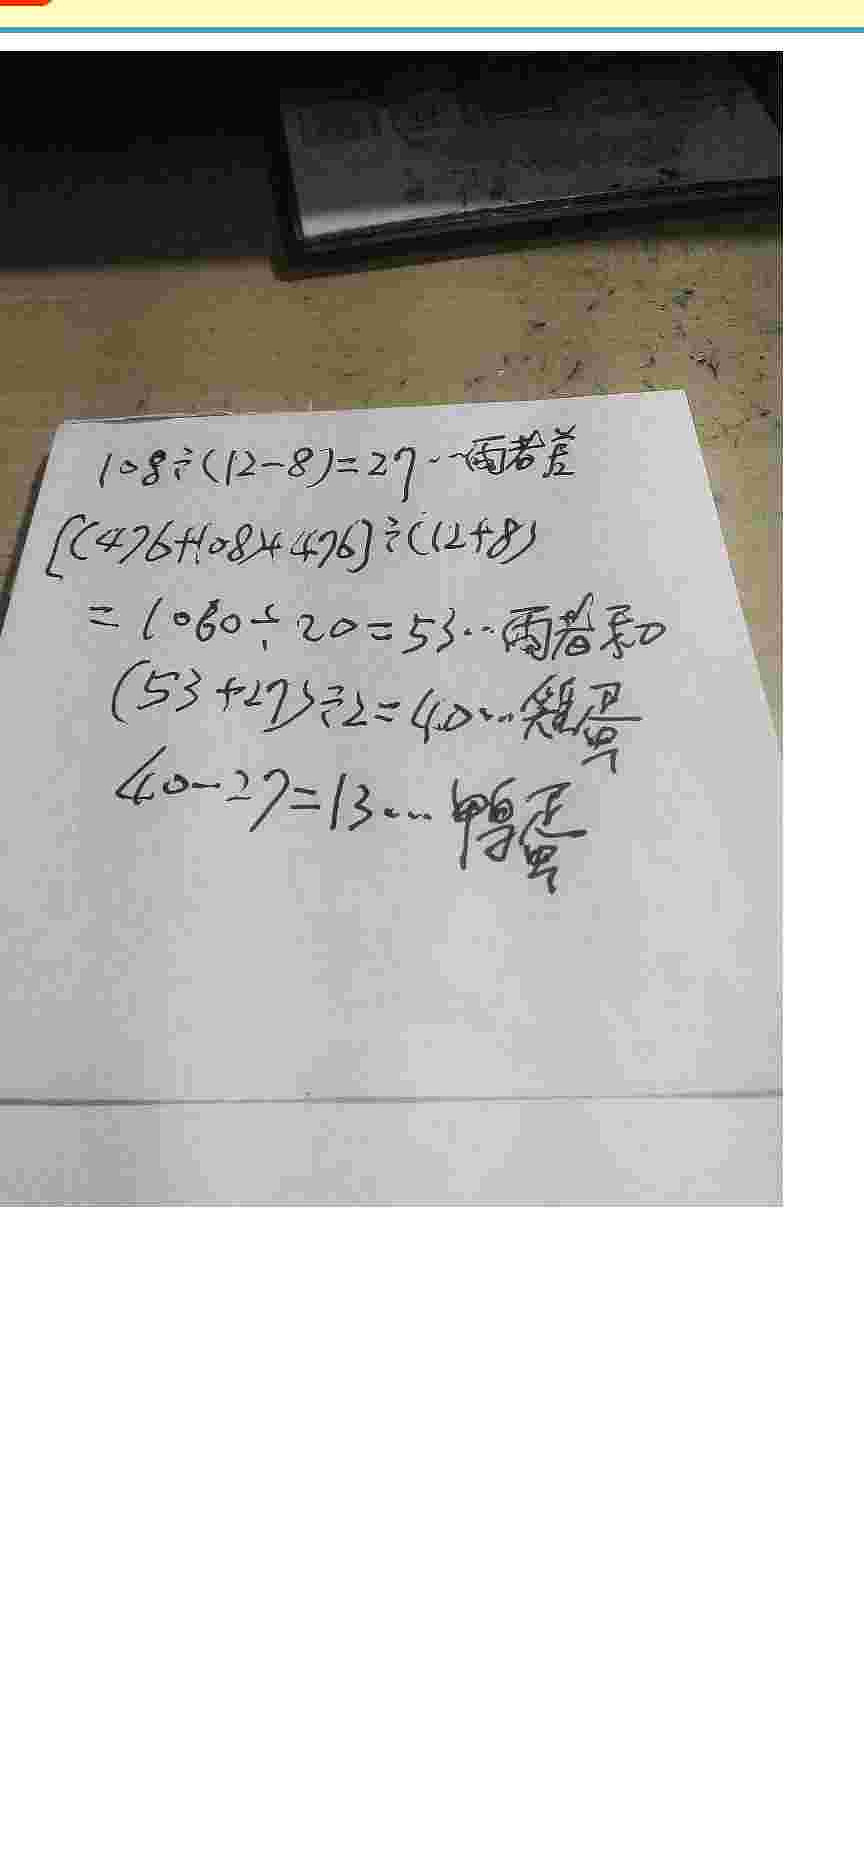 108÷(12-8)=27…兩者差
[(476+108)+476]÷(12+8)
=1060÷20=53…兩者和
(53+27)÷2=40…雞蛋
40-27=13…鴨蛋